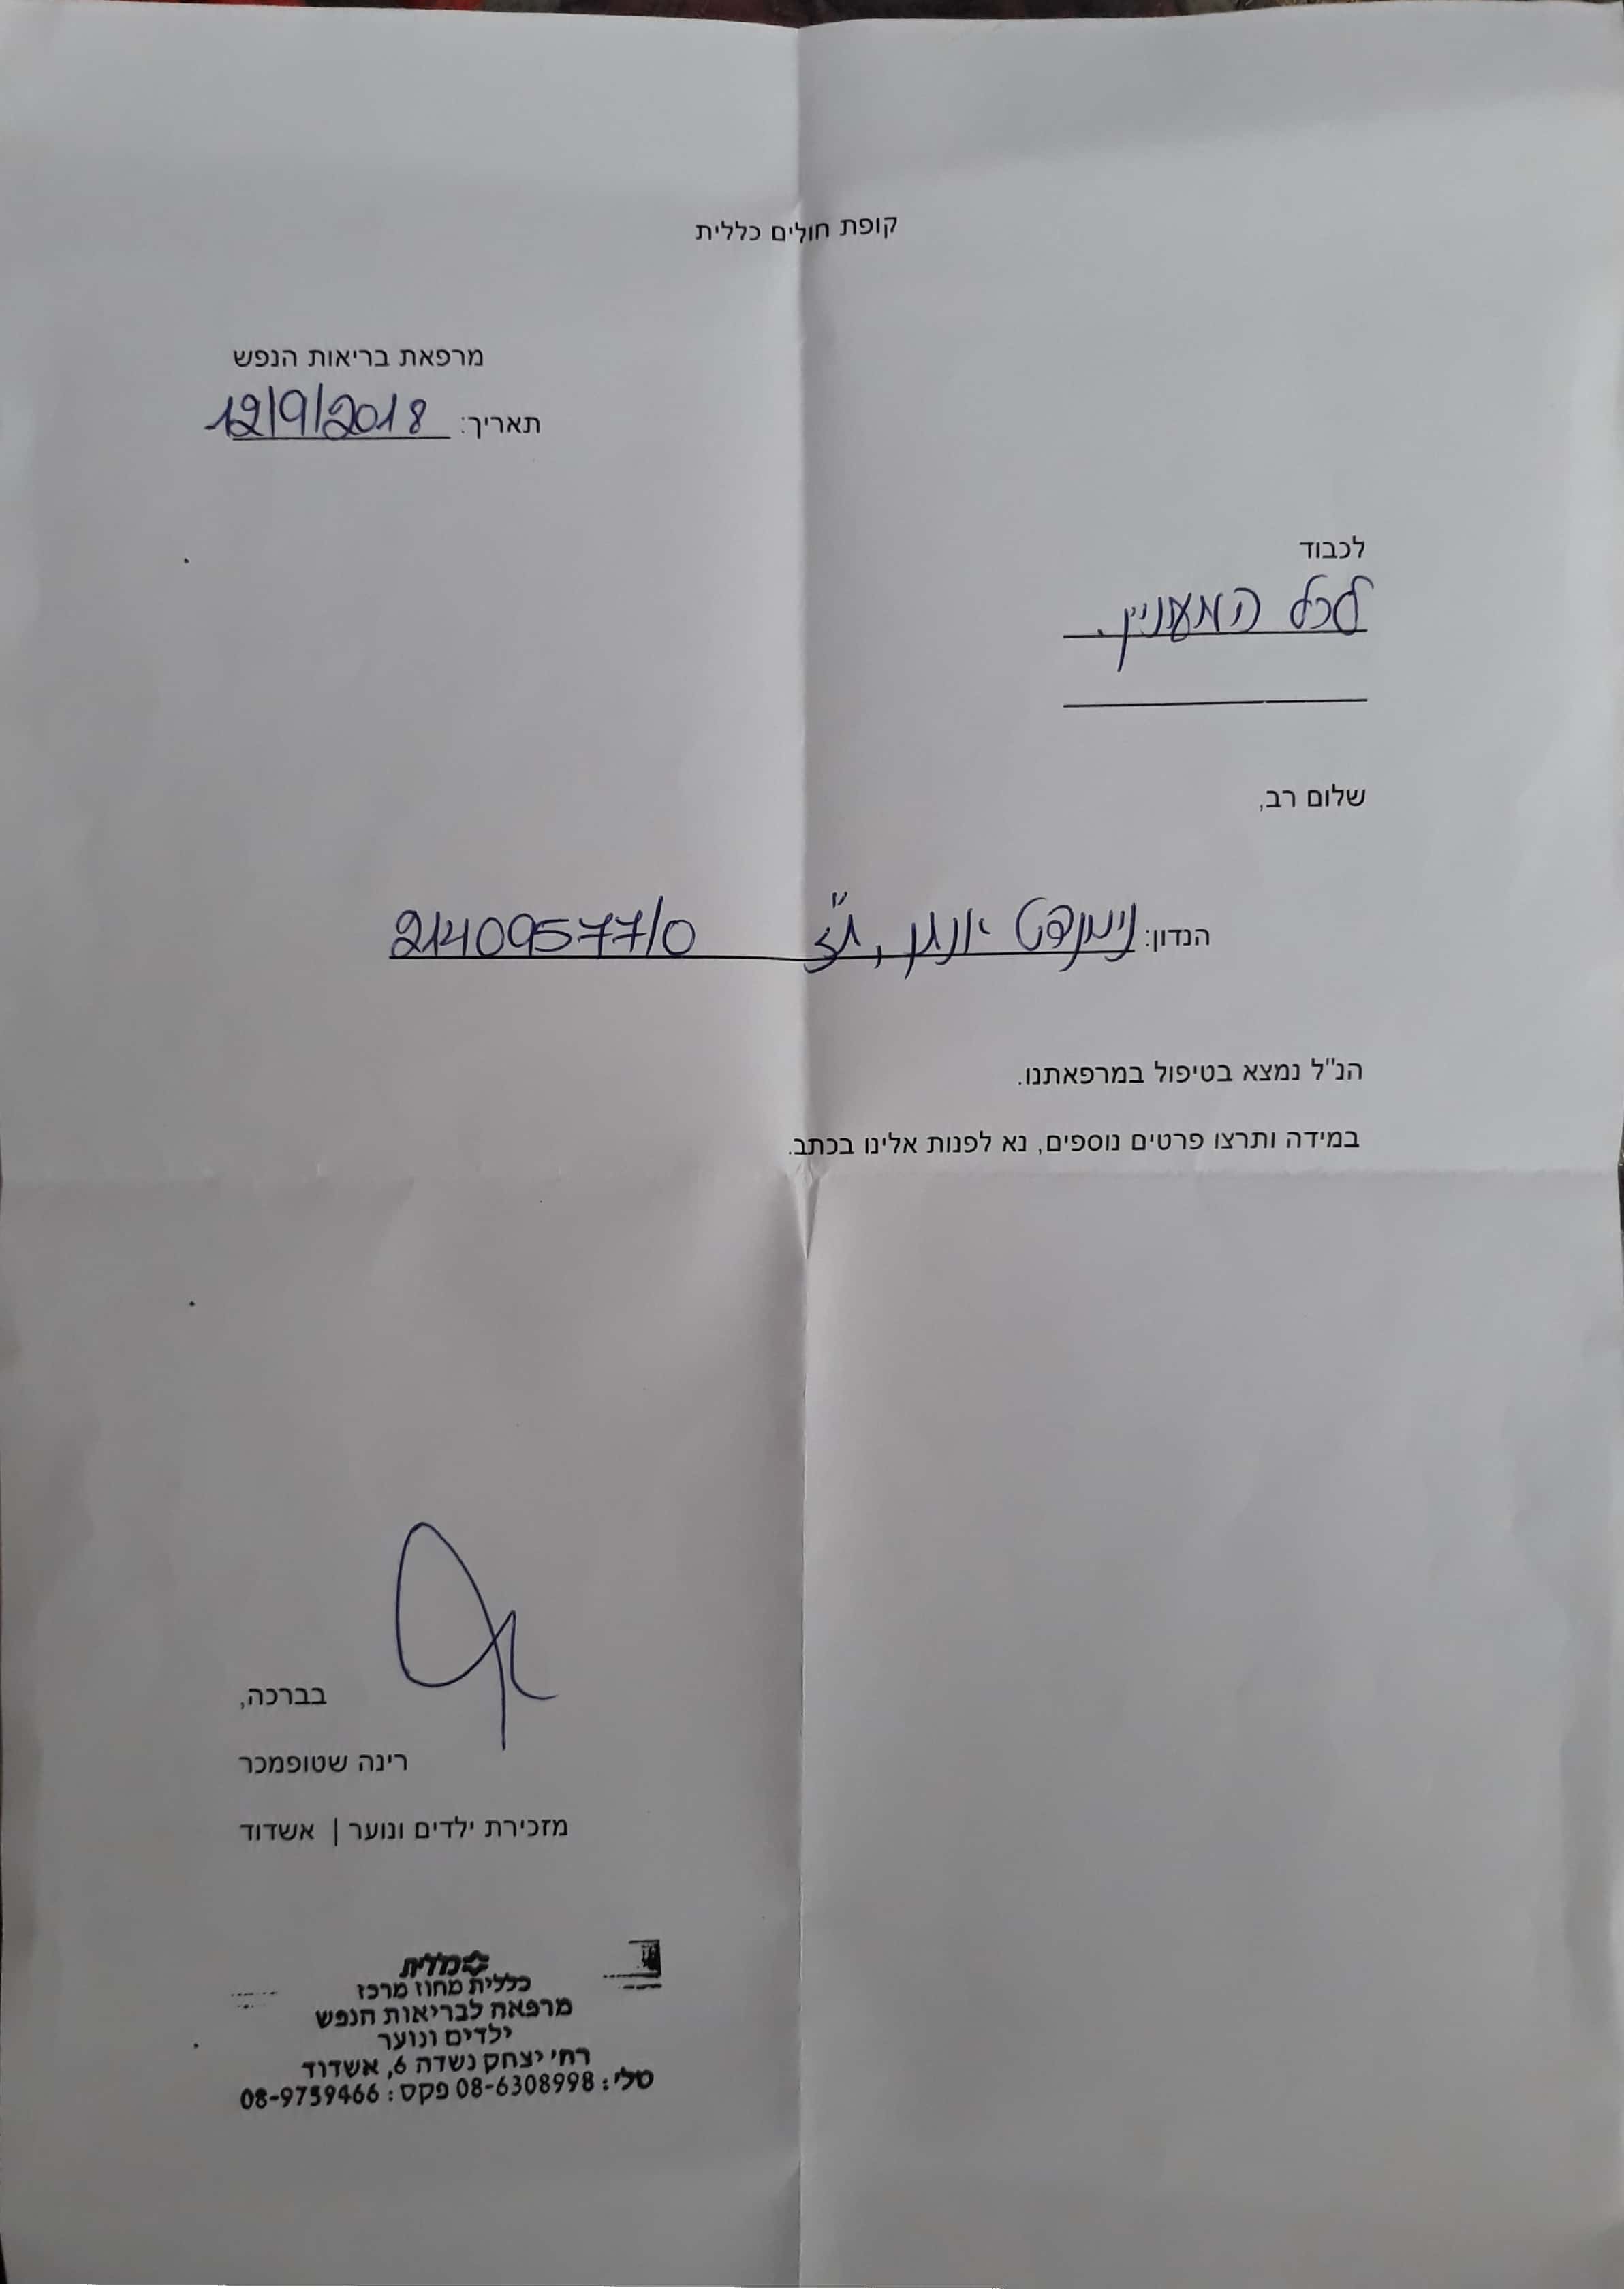 קופת חולים כללית
מרפאת בריאות הנפש
תאריך: 12/9/2018
לכבוד
לכל המעוניין.
שלום רב,
הנדון: ת"ז 21409577/0
הנ"ל נמצא בטיפול במרפאתנו.
במידה ותרצו פרטים נוספים, נא לפנות אלינו בכתב.
בברכה,
רינה שטופמכר
מזכירת ילדים ונוער | אשדוד
כללית
כללית מחוז מרכז
מרפאה לבריאות הנפש
ילדים ונוער
רח' יצחק נשדה 6, אשדוד
טלי: 08-6308998 פקס: 08-9759466